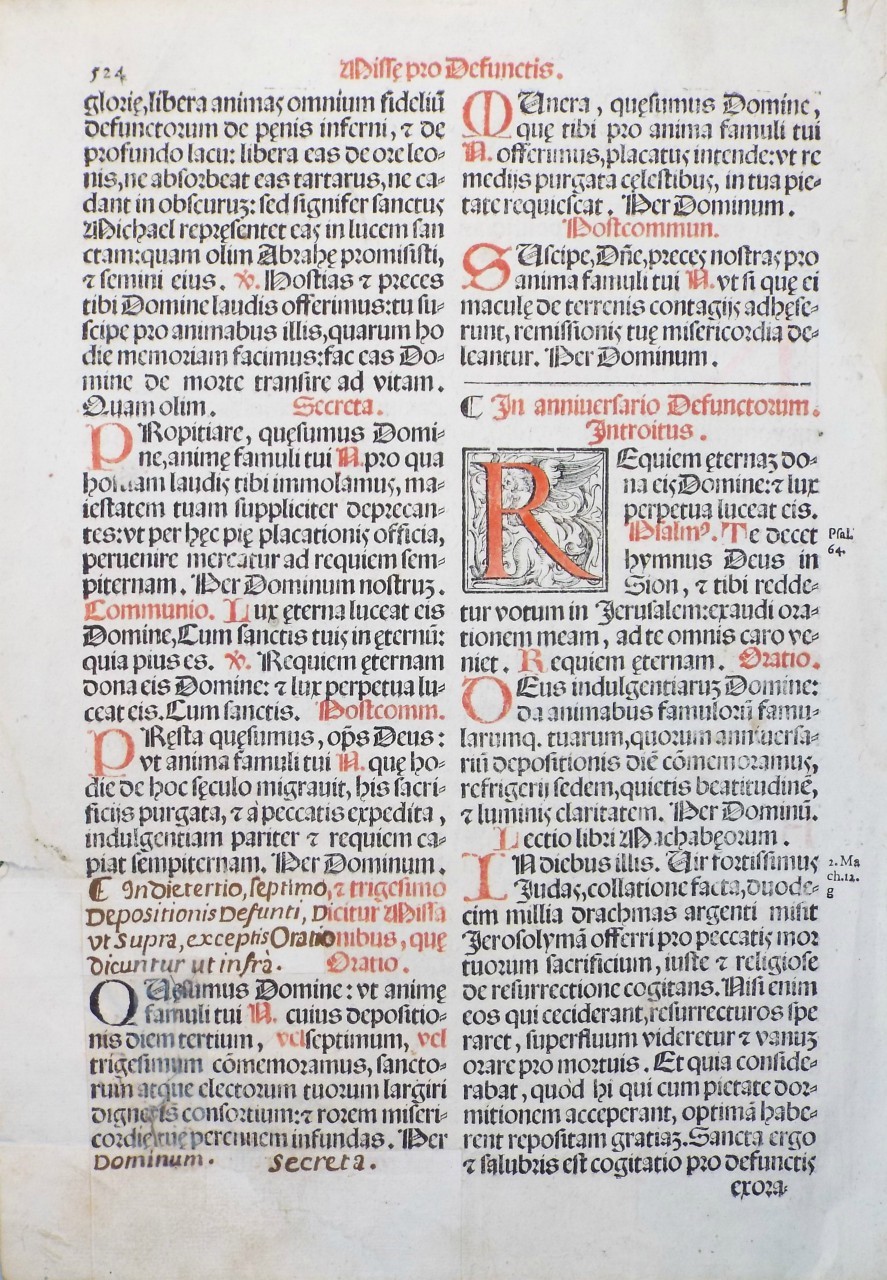 524
Missę pro Defunctis.
glorię, libera animas omnium fideliū
defunctorum de pęnis inferni, ⁊ de
profundo lacu: libera eas de ore leo-
nis, ne absorbeat eas tartarus, ne ca-
dant in obscuruꝫ: sed signifer sanctus
Michael repręsentet eas in lucem san
ctam: quam olim Abrahę promisisti,
⁊ semini eius. ℣. Hostias ⁊ preces
tibi Domine laudis offerimus: tu su-
scipe pro animabus illis, quarum ho
die memoriam facimus: fac eas Do-
mine de morte transire ad vitam.
Quam olim. Secreta.
PRopitiare, quęsumus Domi-
ne, animę famuli tui N. pro qua
hostiam laudis tibi immolamus, ma-
iestatem tuam suppliciter deprecan-
tes: vt per hęc pię placationis officia,
peruenire mereatur ad requiem sem-
piternam. Per Dominum nostruꝫ.
Communio. Lux ęterna luceat eis
Domine, Cum sanctis tuis in ęternū:
quia pius es. ℣. Requiem ęternam
dona eis Domine: ⁊ lux perpetua lu-
ceat eis. Cum sanctis. Postcomm.
PRęsta quęsumus, op̄s Deus:
vt anima famuli tui N. quę ho-
die de hoc sęculo migrauit, his sacri-
ficijs purgata, ⁊ à peccatis expedita,
indulgentiam pariter ⁊ requiem ca-
piat sempiternam. Per Dominum.
¶ In die tertio, septimo, ⁊ trigesimo
Depositionis Defunti, Dicitur Missa
vt Supra, exceptis Orationibus, quę
dicuntur ut infrà. Oratio.
QUęsumus Domine: vt animę
famuli tui N. cuius depositio-
nis diem tertium, vel septimum, vel
trigesimum cōmemoramus, sancto-
rum atque electorum tuorum largiri
digneris consortium: ⁊ rorem miseri-
cordię tuę perennem infundas. Per
Dominum. Secreta.
MUnera, quęsumus Domine,
quę tibi pro anima famuli tui
N. offerimus, placatus intende: vt re
medijs purgata cęlestibus, in tua pie-
tate requiescat. Per Dominum.
Postcommun.
SUscipe, Dn̄e, preces nostras pro
anima famuli tui N. vt si quę ei
maculę de terrenis contagijs adhęse-
runt, remissionis tuę misericordia de-
leantur. Per Dominum.
¶ In anniuersario Defunctorum.
Introitus.
REquiem ęternaꝫ do-
na eis Domine: ⁊ lux
perpetua luceat eis.
Psalmꝰ. Te decet
hymnus Deus in
Sion, ⁊ tibi redde-
Psal.
64.
tur votum in Jerusalem: exaudi ora-
tionem meam, ad te omnis caro ve-
niet. Requiem ęternam. Oratio.
DEus indulgentiaruꝫ Domine:
da animabus famulorū famu-
larumq. tuarum, quorum anniuersa-
riū depositionis diē cōmemoramus,
refrigerij sedem, quietis beatitudinē,
⁊ luminis claritatem. Per Dominū.
Lectio libri Machabęorum.
IN diebus illis. Uir fortissimus
Judas, collatione facta, duode-
2. Ma
ch. 12.
g
cim millia drachmas argenti misit
Jerosolymā offerri pro peccatis mor
tuorum sacrificium, iuste ⁊ religiose
de resurrectione cogitans. Nisi enim
eos qui ceciderant, resurrecturos spe
raret, superfluum videretur ⁊ vanuꝫ
orare pro mortuis. Et quia conside-
rabat, quòd hi qui cum pietate dor-
mitionem acceperant, optimā habe-
rent repositam gratiaꝫ. Sancta ergo
⁊ salubris est cogitatio pro defunctis
exora-